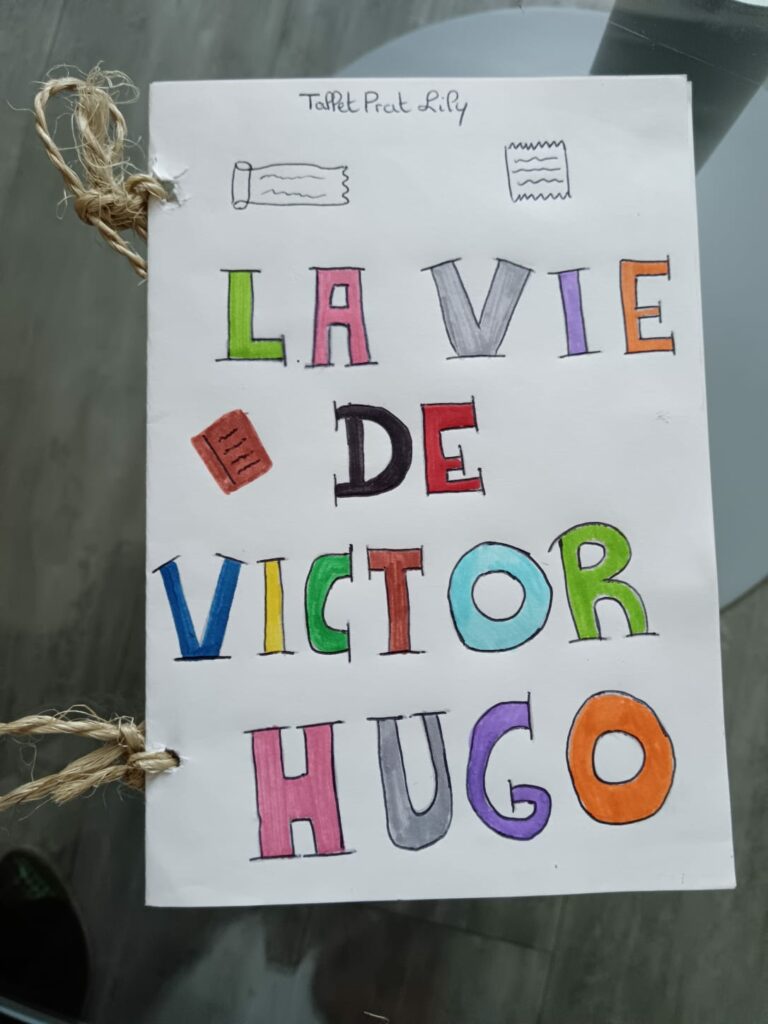 Taffet Prat Lily
LA VIE
DE
VICTOR
HUGO